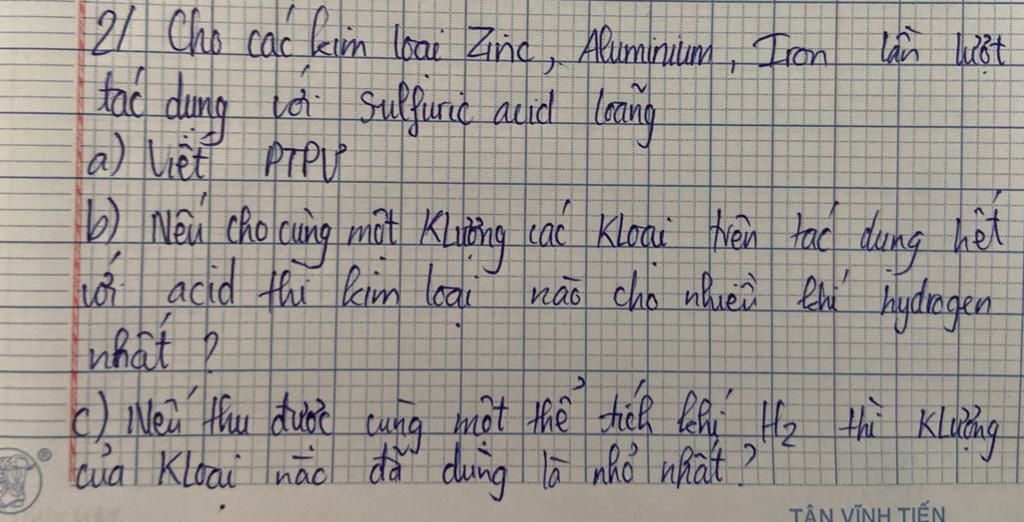 2/ Cho các kim loại Zinc, Aluminium, Iron lần lượt
tác dụng với sulfuric acid loãng
a) Viết PTPƯ
b) Nếu cho cùng một Klượng các Kloại trên tác dụng hết
với acid thì kim loại nào cho nhiều khí hydrogen
nhất ?
c) Nếu thu được cùng một thể tích khí H₂ thì Klượng
của Kloại nào đã dùng là nhỏ nhất ?
®
TÂN VĨNH TIẾN